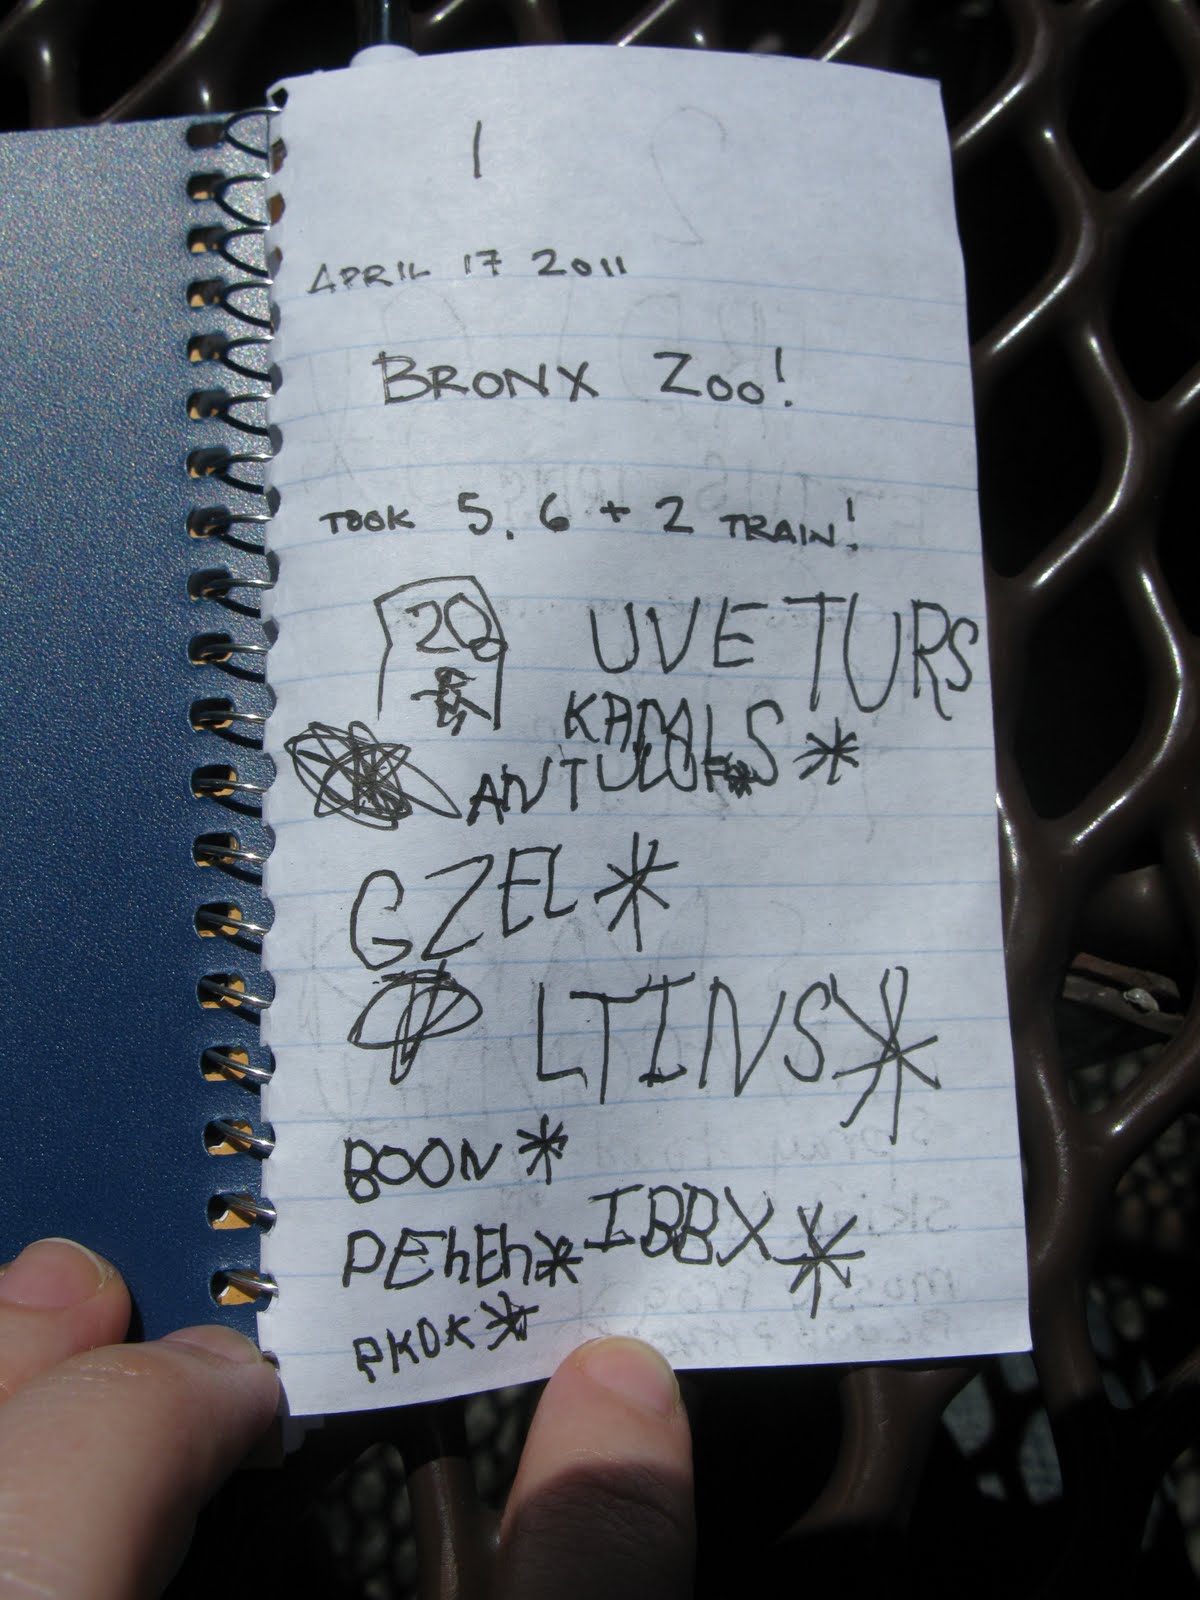 1
APRIL 17 2011
BRONX ZOO!
TOOK 5, 6 + 2 TRAIN!
ZOO
UVE TURS
KAMALS *
GZEL *
LTINS *
BOON *
PEhEh * IBBX *
PKOK *